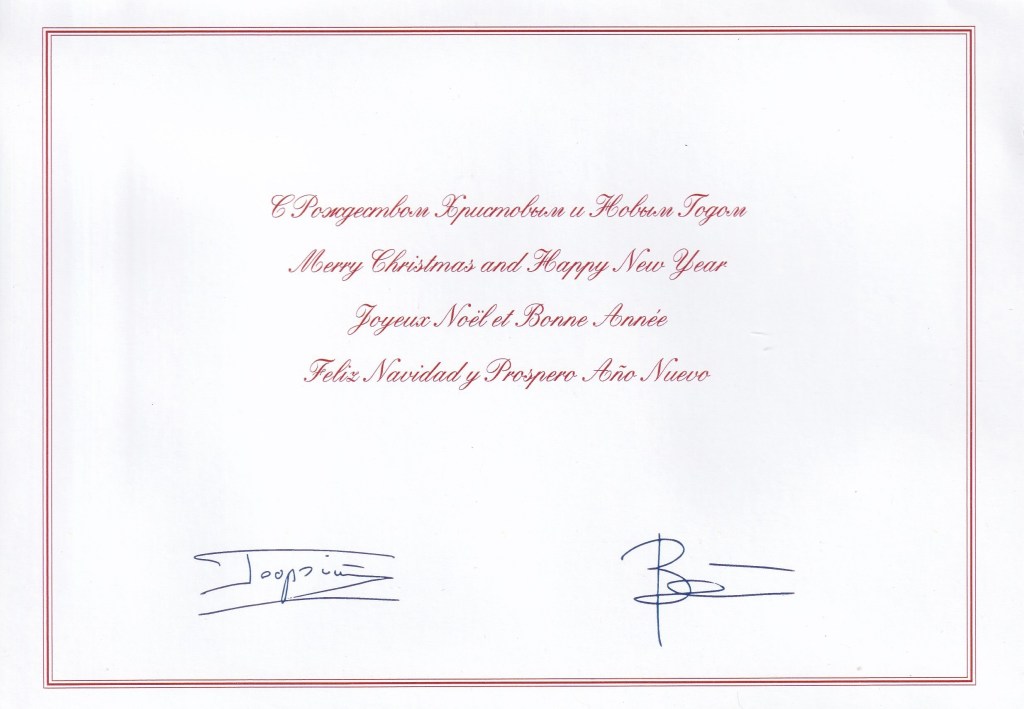 С Рождеством Христовым и Новым Годом
Merry Christmas and Happy New Year
Joyeux Noël et Bonne Année
Feliz Navidad y Prospero Año Nuevo